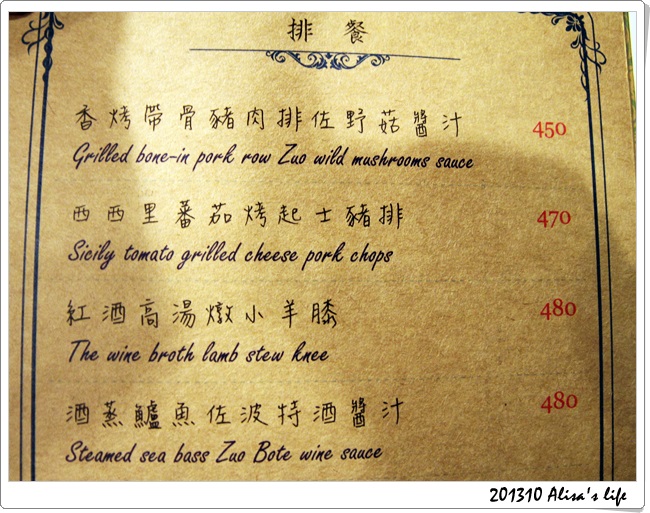 排餐
香烤帶骨豬肉排佐野菇醬汁 450
Grilled bone-in pork row Zuo wild mushrooms sauce
西西里蕃茄烤起士豬排 470
Sicily tomato grilled cheese pork chops
紅酒高湯燉小羊膝 480
The wine broth lamb stew knee
酒蒸鱸魚佐波特酒醬汁 480
Steamed sea bass Zuo Bote wine sauce
201310 Alisa's life